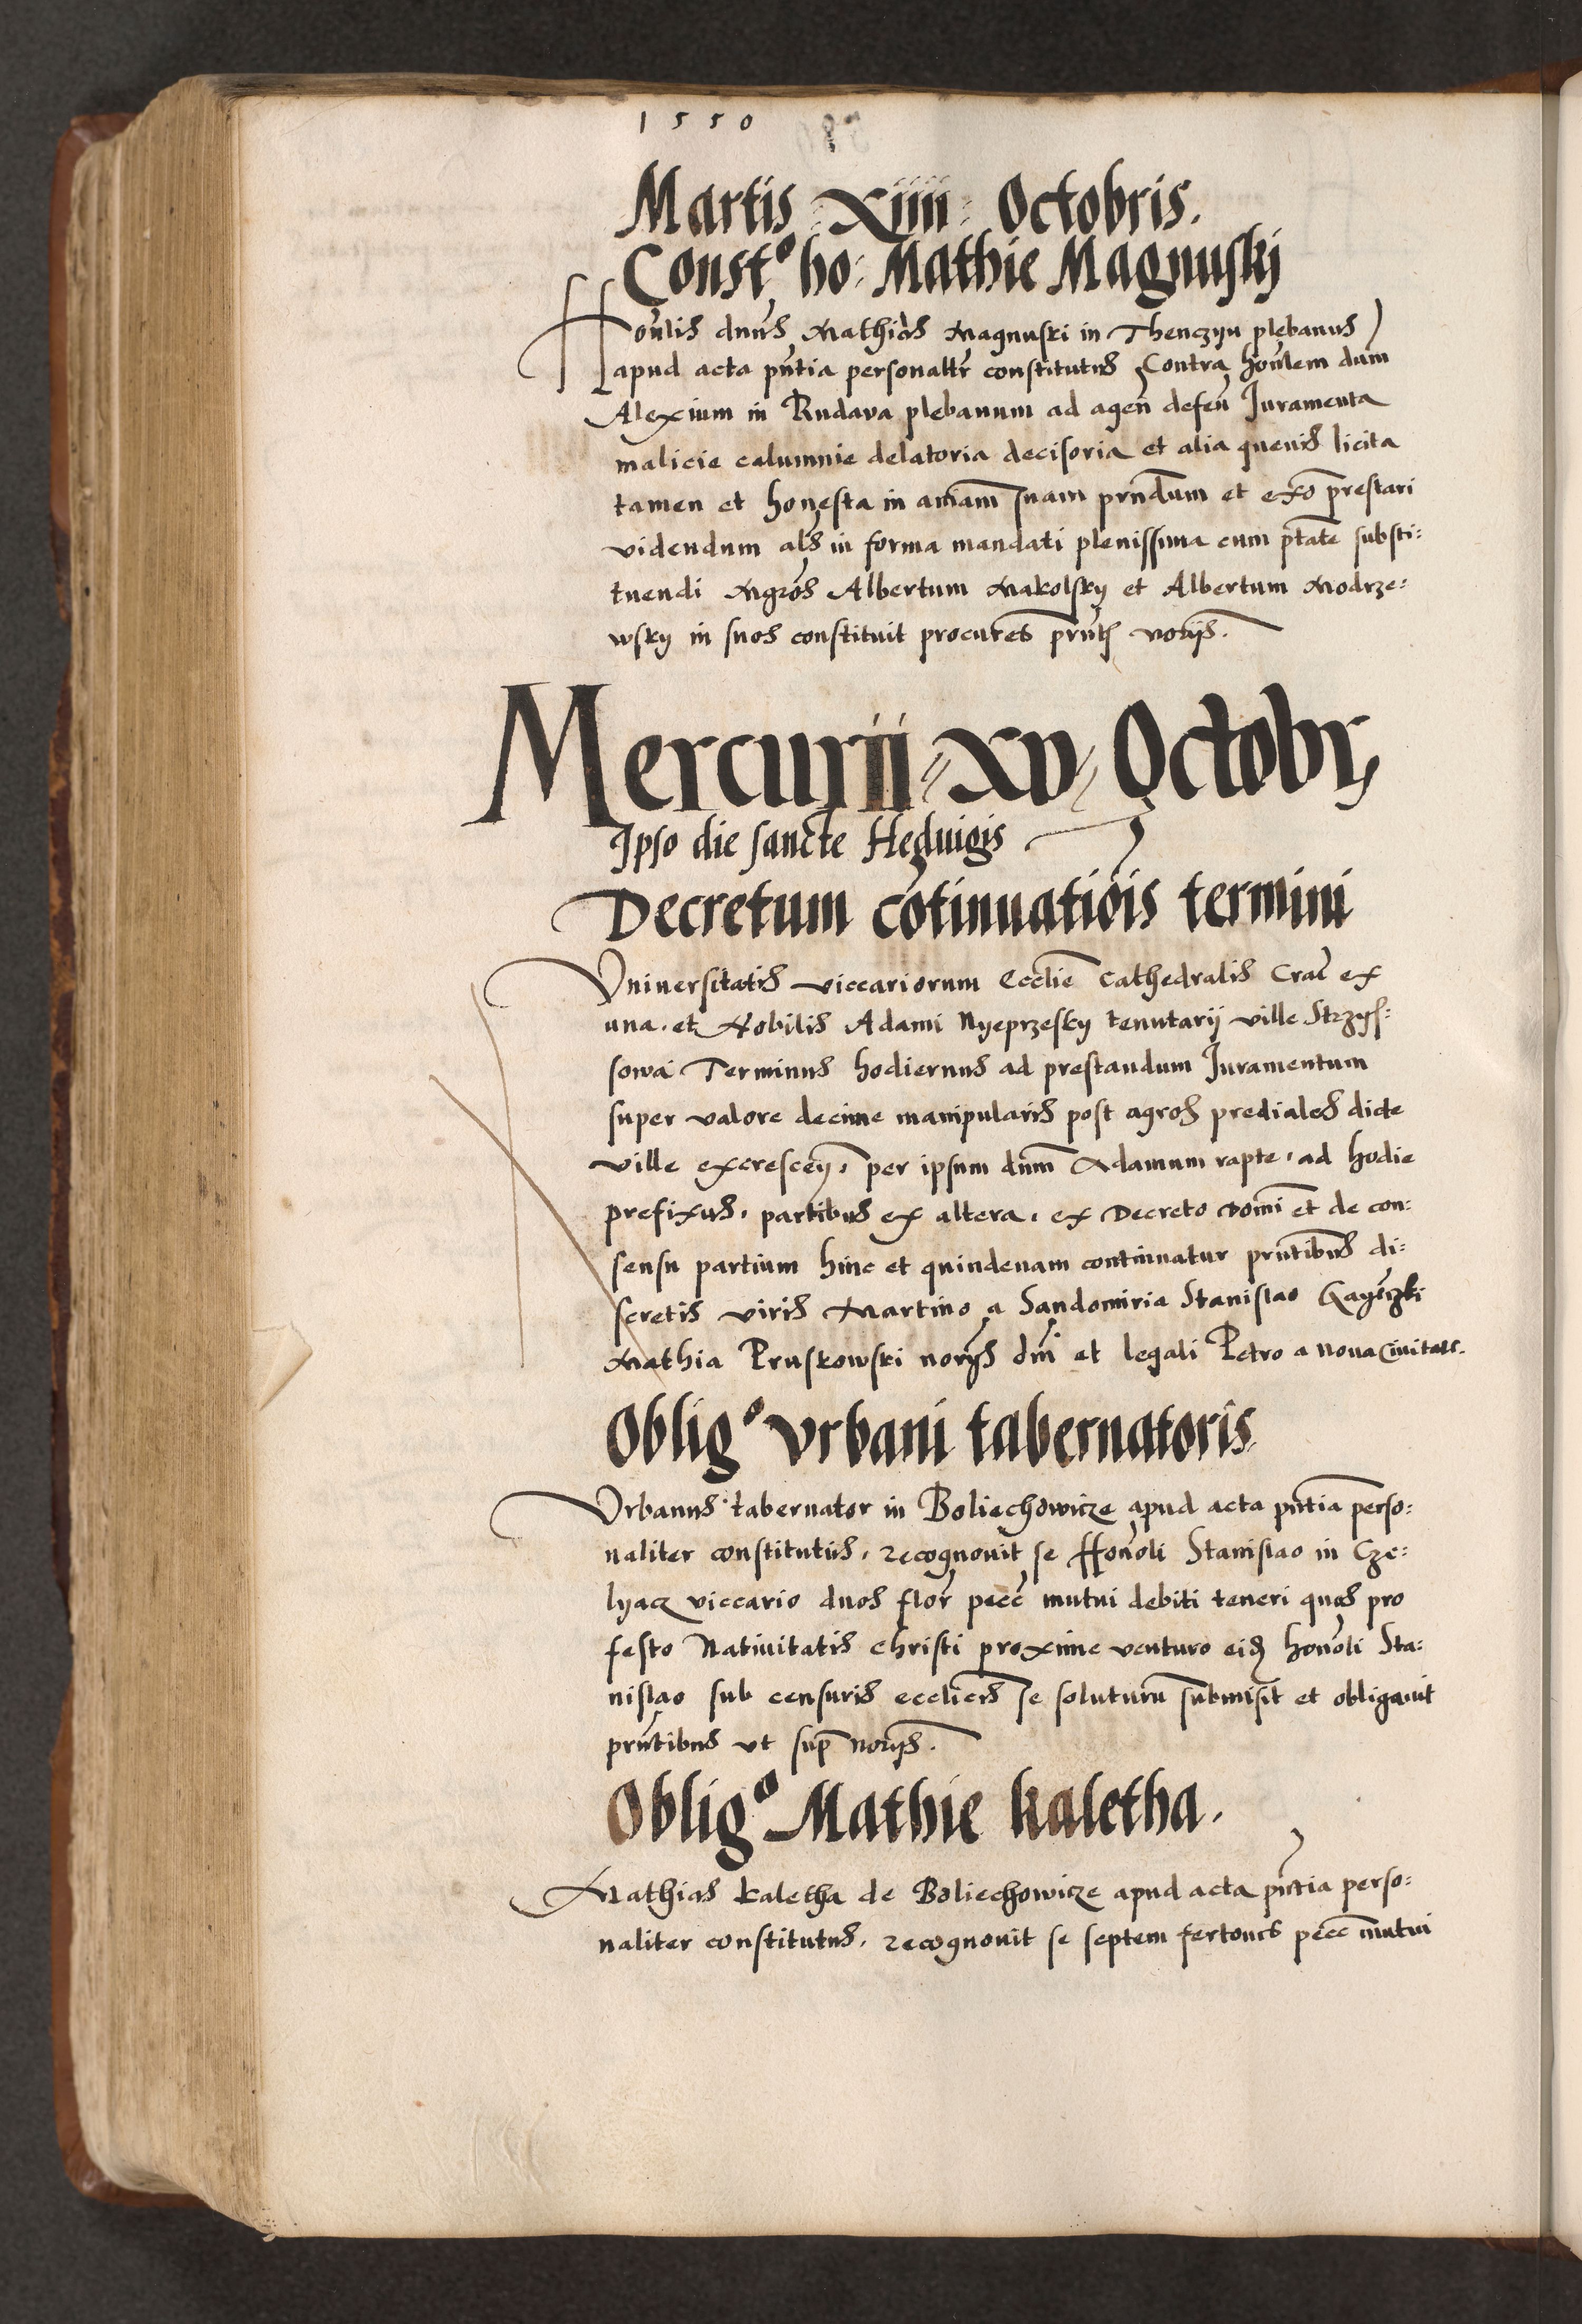 1550
Martis xiiii Octobris.
Constº ho: Mathie Magnuskj
Honlis dnus Mathias Magnuski in Thenczyn plebanus
apud acta pntia personaltr constitutus Contra honlem dnm
Alexium in Rudava plebanum ad agen defen Juramenta
malicie calumnie delatoria decisoria et alia quevis licita
tamen et honesta in aniam suam prndum et exo prestari
videndum als in forma mandati plenissima cum ptate substi:
tuendi Mgros Albertum Makolsky et Albertum Modrze:
wsky in suos constituit procures prnt norijs.
Mercurii xv Octobr
Ipso die sancte Hedvigis
Decretum cōtinuatiōis termini
Vniversitatis viccariorum Ecclie Cathedralis Crac ex
una. et Nobilis Adami Nyeprzesky tenutarij ville Strzys:
sowa Terminus hodiernus ad prestandum Juramentum
super valore decime manipularis post agros prediales dicte
ville excrescen, per ipsum dnm Adamum rapte, ad hodie
prefixus, partibus ex altera, ex Decreto Domi et de con:
sensu partium hinc et quindenam continuatur prntibus di:
scretis viris Martino a Sandomiria Stanislao
Mathia Pruskowski norijs dni et legali Petro a Nova Civitate.
Obligº Vrbani tabernatoris
Vrbanus tabernator in Boliechowicze apud acta pntia perso:
naliter constitutus, recognovit se Honoli Stanislao in Cze:
lyacz viccario duos flor pecc mutui debiti teneri quos pro
festo Nativitatis Christi proxime venturo eid honoli Sta:
nislao sub censuris eccliecis se soluturu submisit et obligavit
prntibus ut sup norijs.
Obligº Mathie kaletha.
Mathias kaletha de Boliechowicze apud acta pntia perso:
naliter constitutus, recognovit se septem fertones pecc mutui